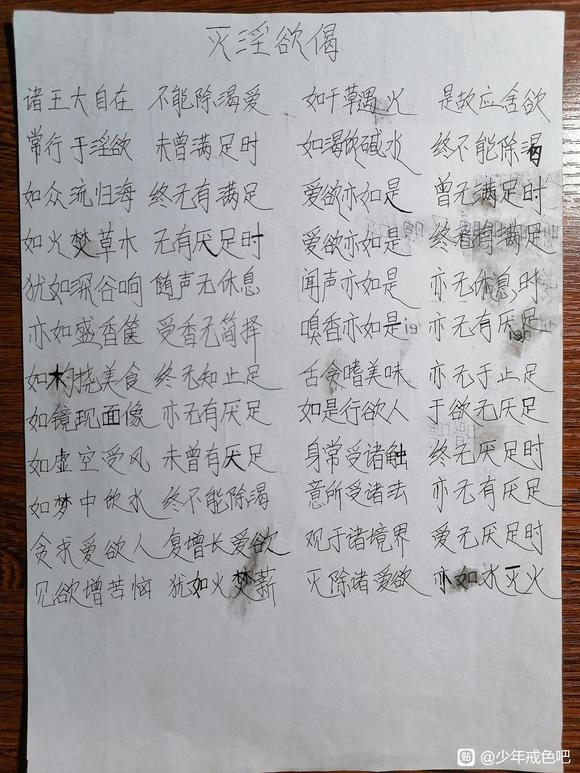 灭淫欲偈
诸王大自在 不能除渴爱 如干草遇火 是故应舍欲
常行于淫欲 未曾满足时 如渴饮碱水 终不能除渴
如众流归海 终无有满足 爱欲亦如是 曾无满足时
如火焚草木 无有厌足时 爱欲亦如是 终者满足
犹如深谷响 随声无休息 闻声亦如是 亦无休息时
亦如盛香箧 受香无简择 嗅香亦如是 亦无有厌足
如挠美食 终无知止足 舌贪嗜美味 亦无于止足
如镜现面像 亦无有厌足 如是行欲人 于欲无厌足
如虚空受风 未曾有厌足 身常受诸触 终无厌足时
如梦中饮水 终不能除渴 意所受诸法 亦无有厌足
贪求爱欲人 复增长爱欲 观于诸境界 爱无厌足时
见欲增苦恼 犹如火焚薪 灭除诸爱欲 亦如水灭火
贴 @少年戒色吧